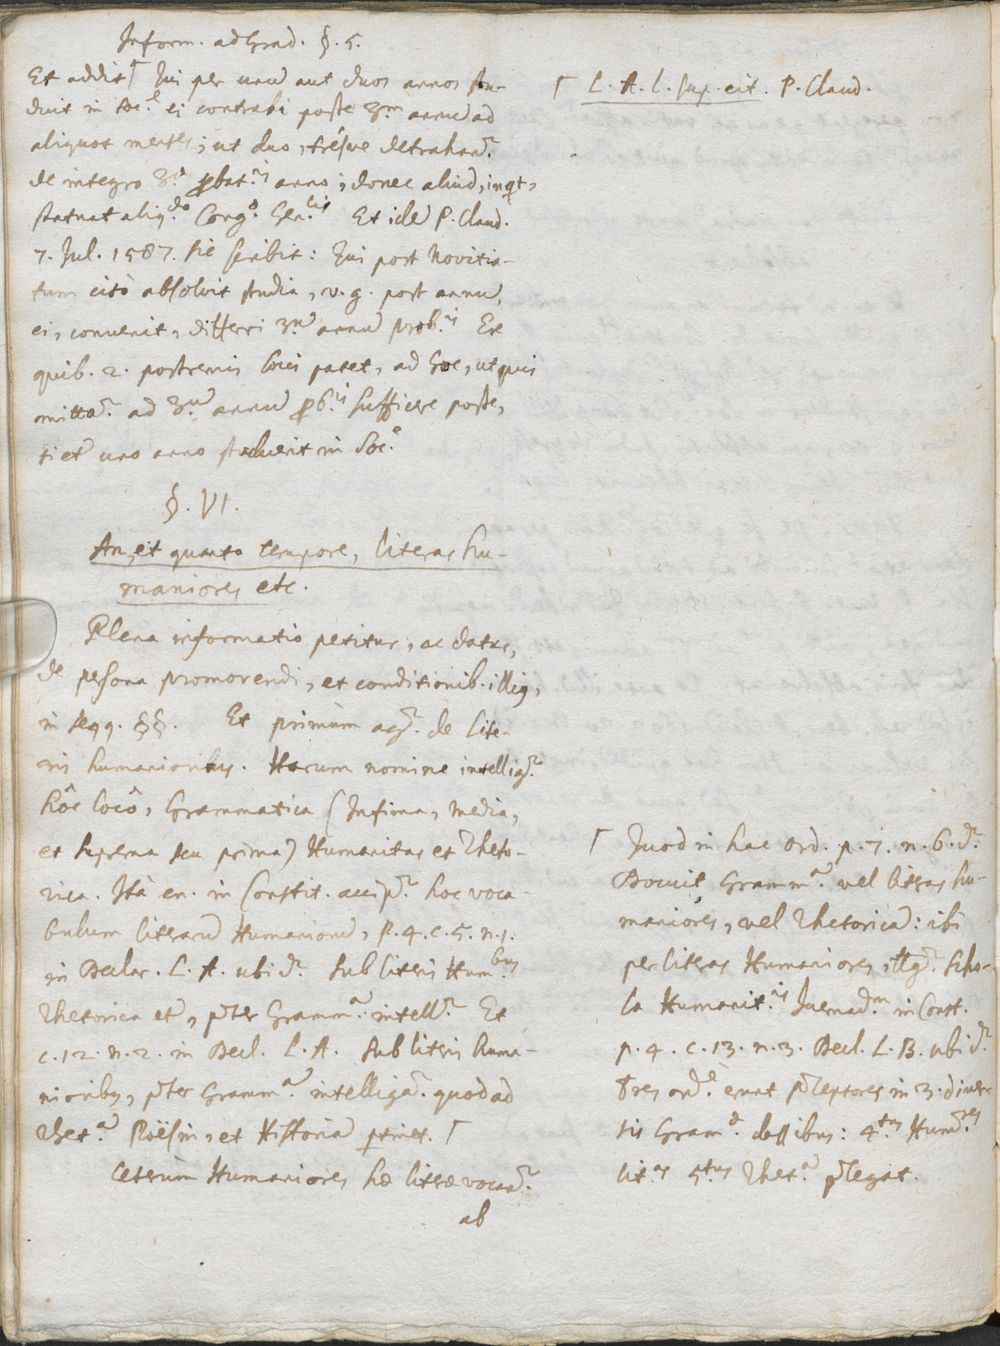 Inform. ad Grad. §. 5.
Et addit ⌈ Qui per unū aut duos annos stu-
duit in Soc.e ei contrahi posse 3.m annū ad
aliquot menses; ut duo, trésve detrahant.r
de integro 3.o prōbat.is anno; donec aliud, inq̄t,
statuat aliq.do Cong.o Gen.lis Et idē P. Claud.
7. Jul. 1587. sic scribit: Qui post Novitia-
tum citò absolvit studia, v. g. post annū,
ei, convenit, differri 3.ū annū prob.is Ex
quib. 2. postremis locis patet, ad hoc, ut quis
mitta.r ad 3.ū annū prōb.is sufficere posse,
si et uno anno studuerit in Soc.e
§. VI.
An, et quanto tempore, literas hu-
maniores etc.
Plena informatio petitur, ac datur,
de psona promovendi, et conditionib. illiq,
in seqq. §§. Et primùm agr̄. de lite-
ris humanioribus. Harum nomine intellig.r
hôc locô, Grammatica (Infima, Media,
et suprema seu prima) Humanitas et Rheto-
rica. Ità en. in Constit. accip.r hoc voca-
bulum literarū Humaniorū, p. 4. c. 5. n. 1.
in Declar. L. A. ubi d.r Sub literis Hum.bus
Rhetorica etc, p̄ter Gramm.a intell.r Et
c. 12. n. 2. in Decl. L. A. Sub litris huma-
nioribus, p̄ter Gramm.a intelliga.r quod ad
Rhet.a Poësin, et Historiā ptinet. ⌈
Ceterùm Humaniores hæ litræ vocan.r
ab
⌈ L. A. l. sup. cit. P. Claud.
⌈ Quod in hac ord. p. 7. n. 6. d.r
Docuit Gramm.a vel litras hu-
maniores, vel Rhetoricā: ibi
per literas Humaniores, itlg.r Scho-
la Humanit.is Quemad.m in Const.
p. 4. c. 13. n. 3. Decl. L. B. ubi d.r
Tres ord.e erunt p̄ceptores in 3. diver-
sis Gram.æ classibus: 4.tus Human.res
lit.as 5.tus Rhet.a p̄legat.